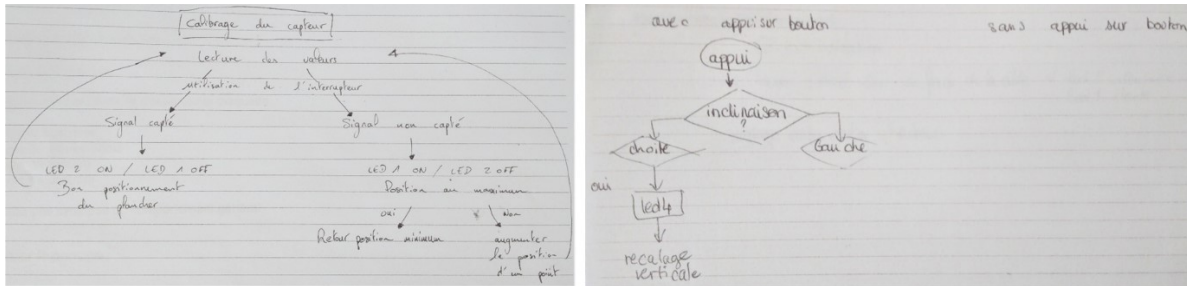 Calibrage du capteur
Lecture des valeurs
utilisation de l'interrupteur
Signal capté
Signal non capté
LED 2 ON / LED 1 OFF
Bon positionnement
du plancher
LED 1 ON / LED 2 OFF
Position au maximum
oui
Non
Retour position minimum
augmenter
la position
d'un point
avec appui sur bouton
sans appui sur bouton
appui
inclinaison
?
droite
Gauche
oui
led4
recalage
verticale